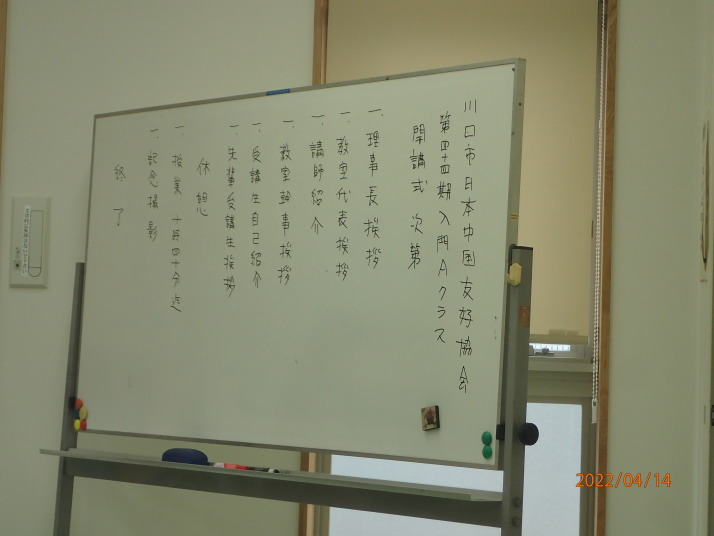 川口市日本中国友好協会
第四十四期入門Aクラス
開講式 次第
一. 理事長挨拶
一. 教室代表挨拶
一. 講師紹介
一. 教室幹事挨拶
一. 受講生自己紹介
一. 先輩受講生挨拶
休憩
一. 授業 十時四十分迄
一. 記念撮影
終了
2022/04/14